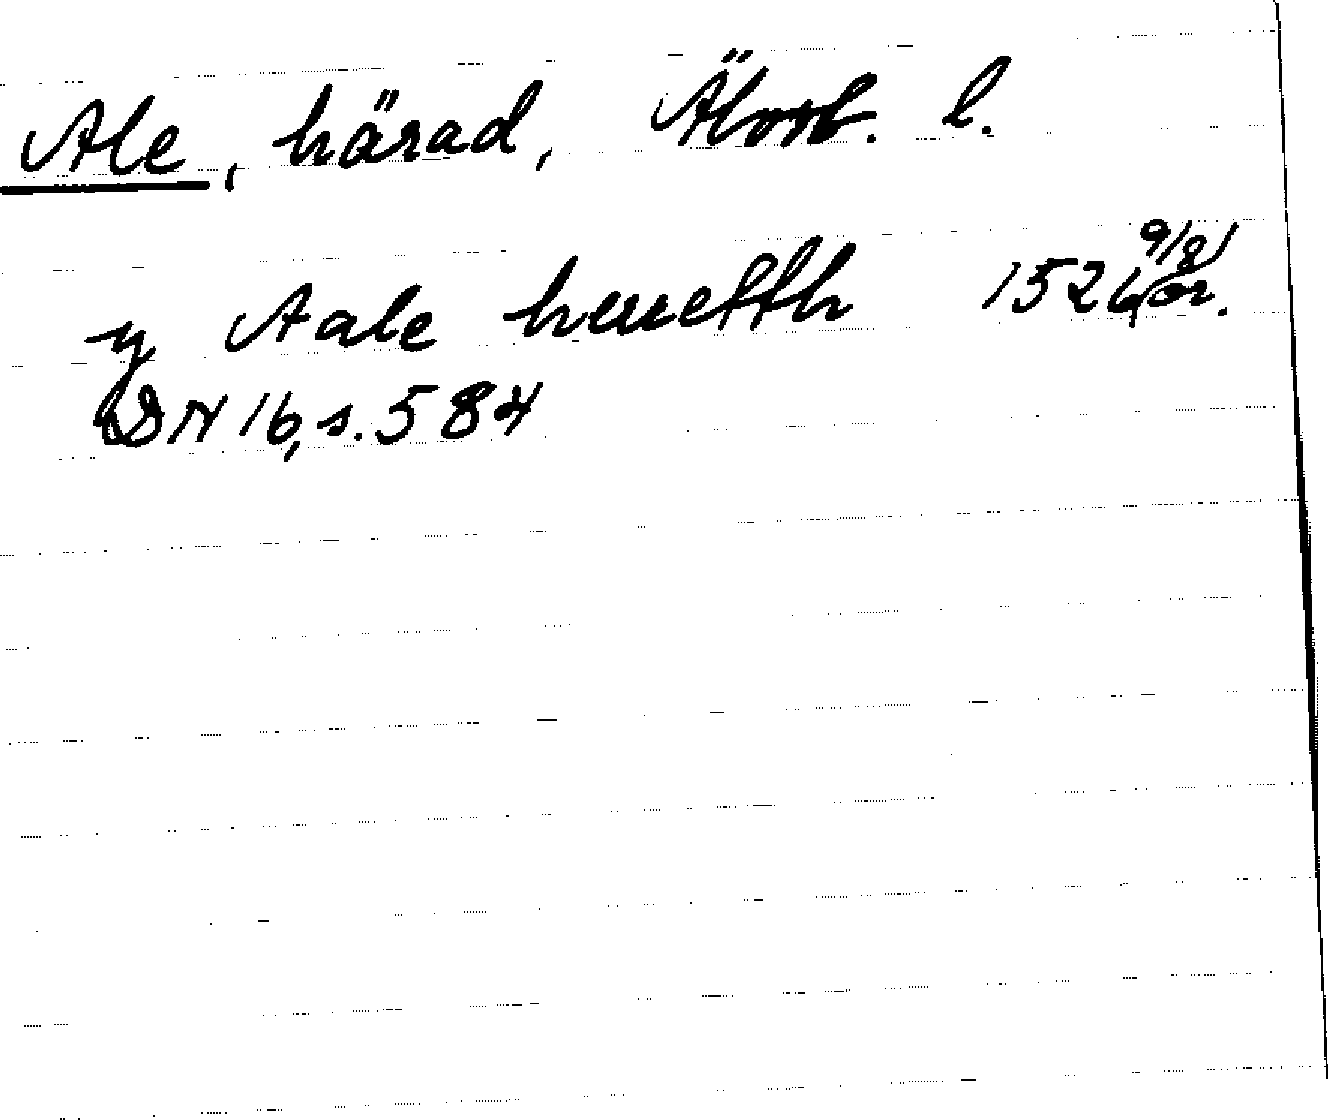 Ale, härad, Älvsb. l.
y Aale hereffth 1526 9/8 or.
DN 16, s. 584